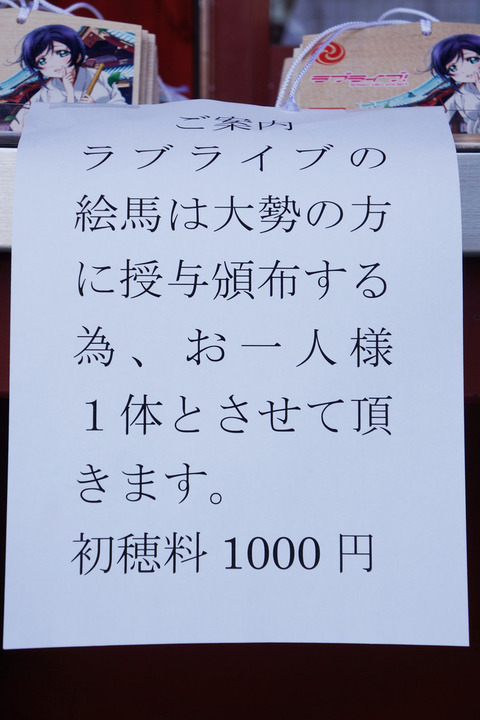 ラブライブ!
ご案内
ラブライブの
絵馬は大勢の方
に授与頒布する
為、お一人様
１体とさせて頂
きます。
初穂料 1000 円